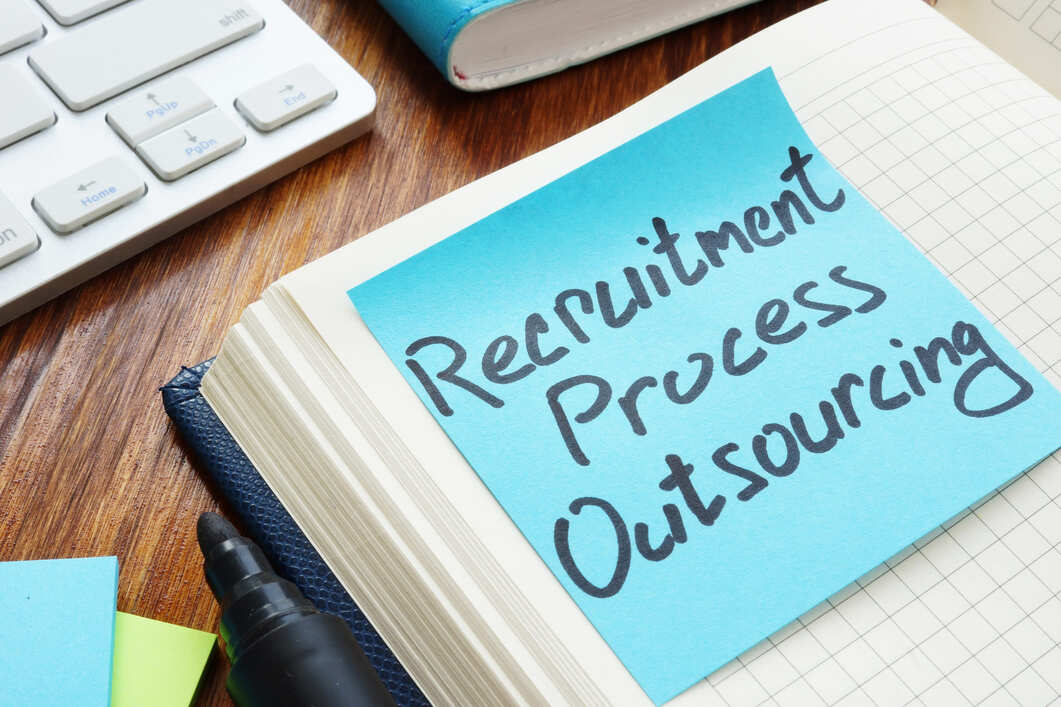 shift
PgUp
End
PgDn
Home
on
Recruitment
Process
Outsourcing